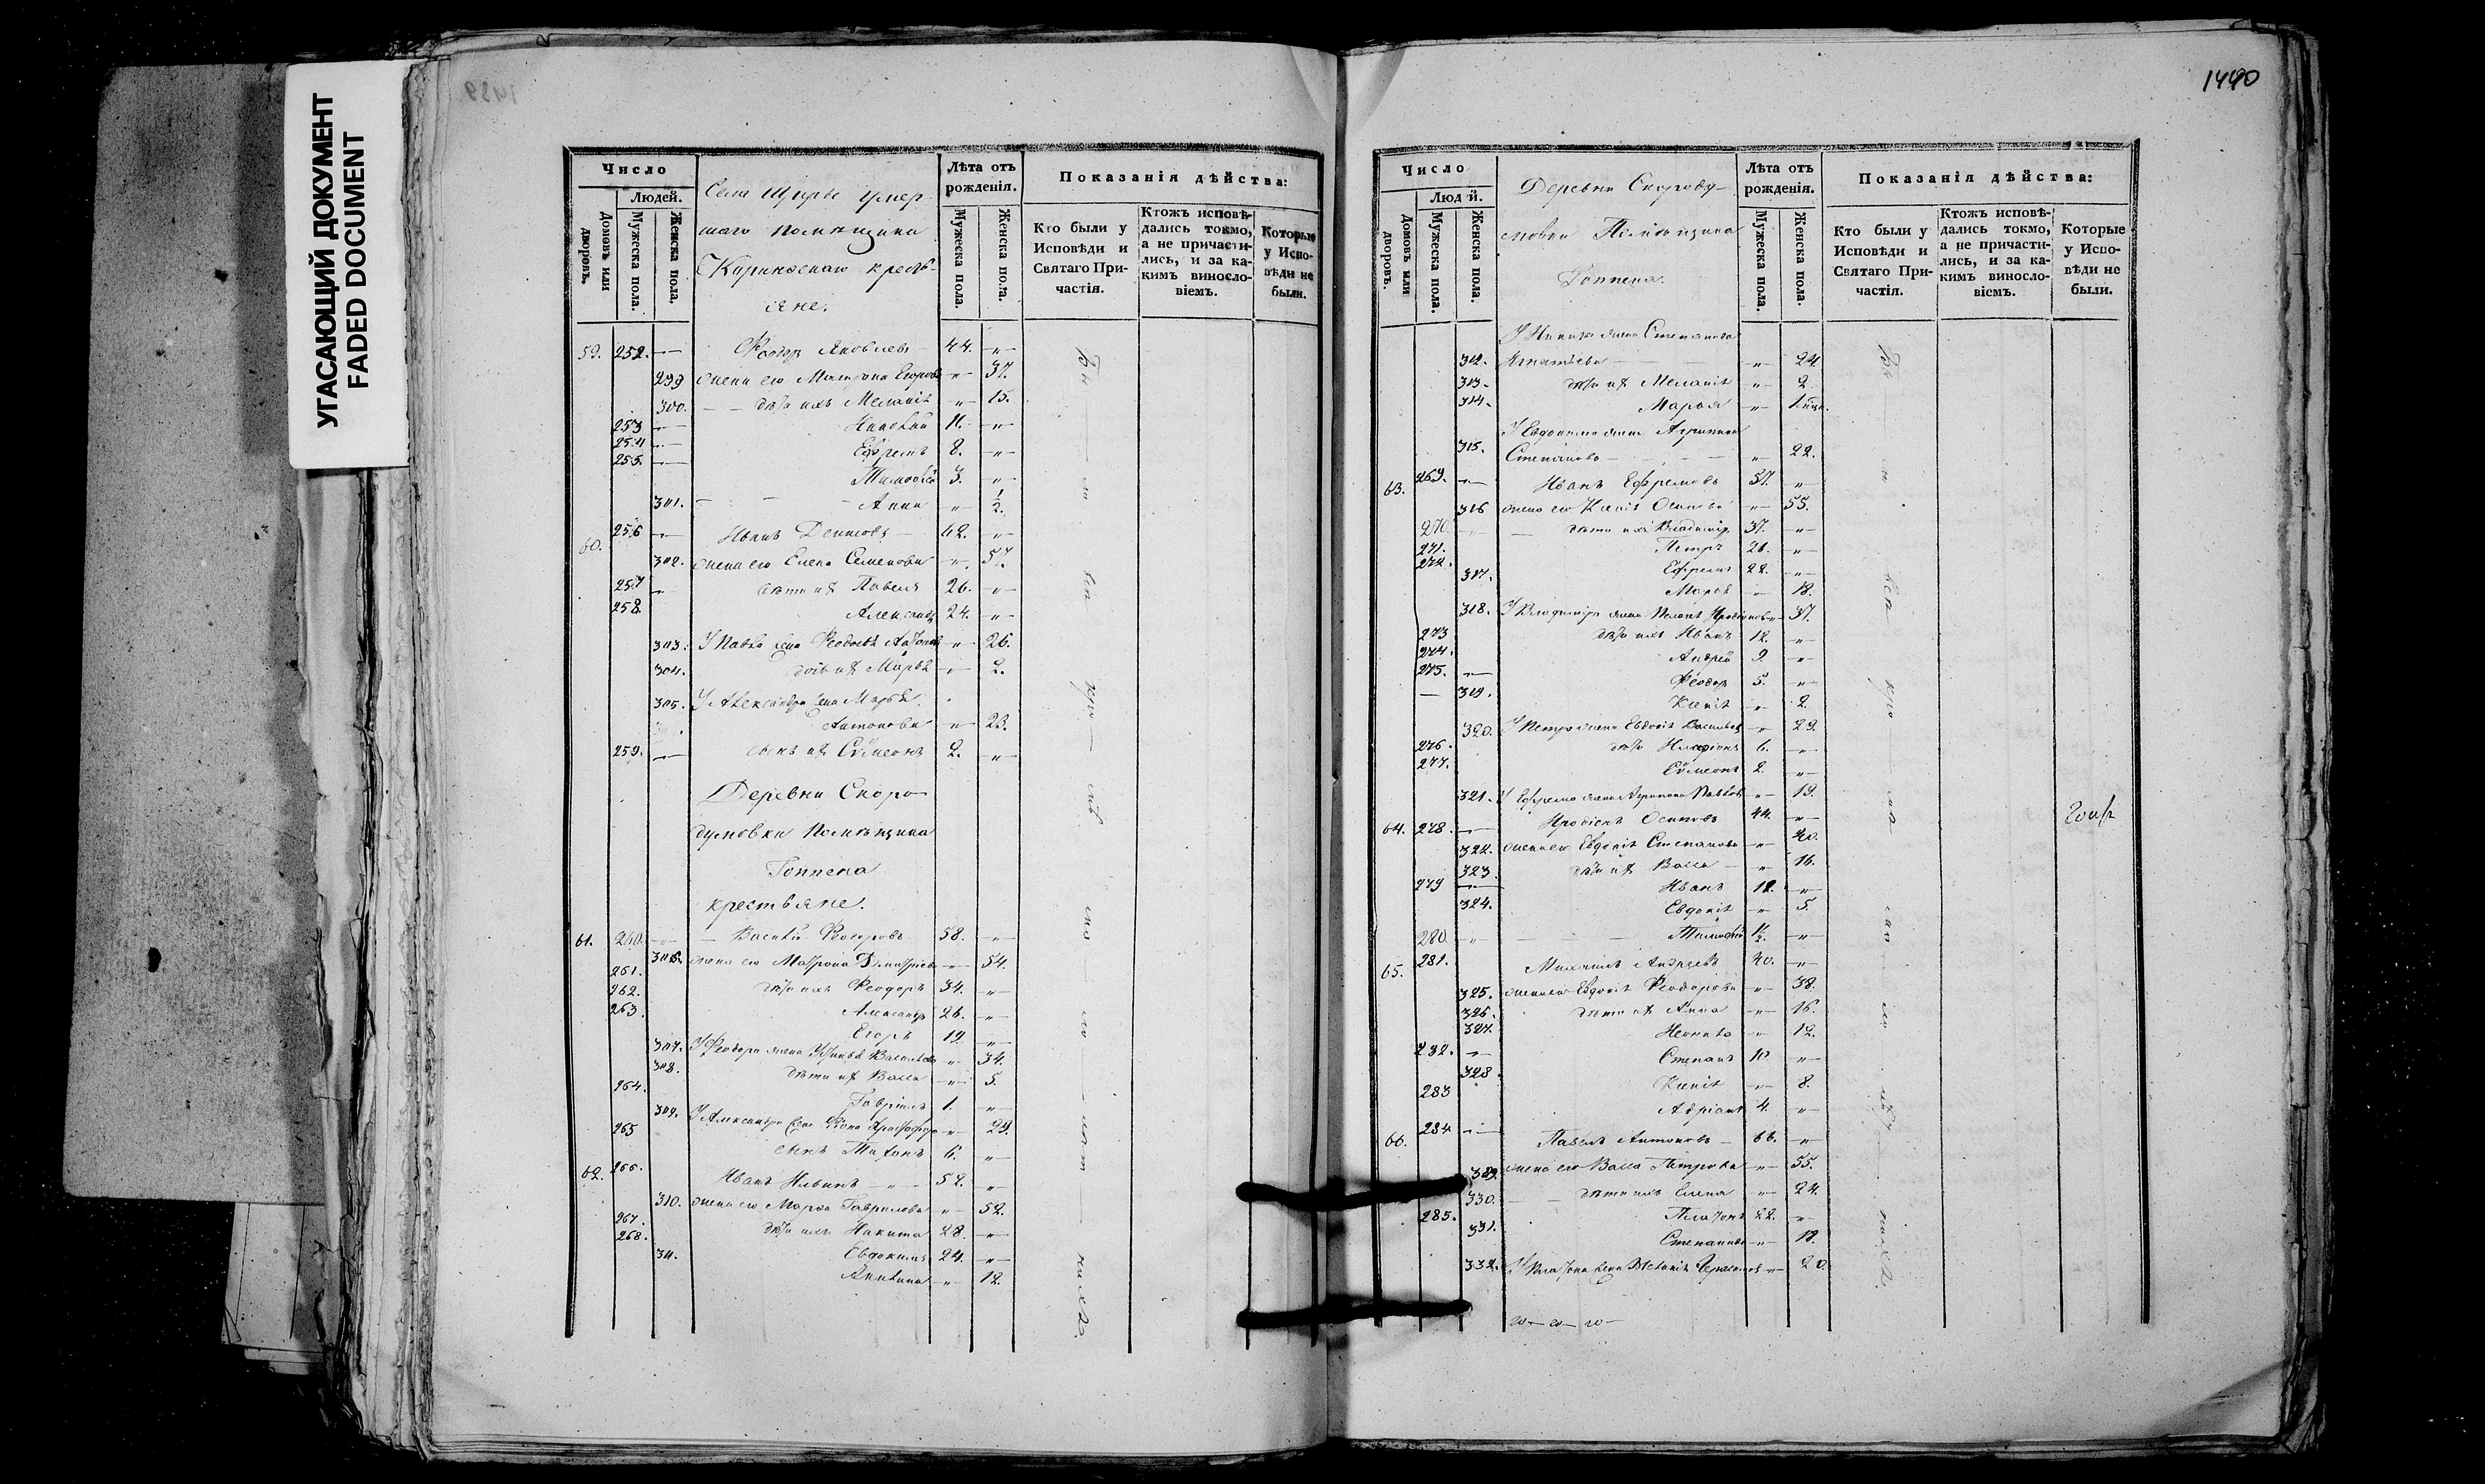 УГАСАЮЩИЙ ДОКУМЕНТ
FADED DOCUMENT
1440
Число
Людей.
Домовъ или дворовъ.
Мужеска пола.
Женска пола.
Села Щигры умер-
шаго помѣщика
крестъ-
яне.
Лѣта отъ рожденія.
Мужеска пола.
Женска пола.
Показанія дѣйства:
Кто были у Исповѣди и Святаго При-частія.
Ктожъ исповѣ-дались токмо, а не причасти-лись, и за ка-кимъ виносло-віемъ.
Которые у Испо-вѣди не были.
59. 252. Феодоръ Яковлевъ 44.
299 жена его Матрона Егорова 37.
300. дѣти ихъ Меланія 15.
253 Николай 11.
254 Ефремъ 8.
255. Тимофей 3.
301. Анна 1/2.
60. 256 Иванъ Денисовъ 42.
302. жена его Елена Семенова
257 дѣти ихъ Павелъ 26.
258. Александръ 24.
303. У Павла жена Феодосія 26.
304. дочь ихъ Марья 2.
305. У Александра жена Марья
Антонова 23.
259. сынъ ихъ Сѵмеонъ 2.
Деревни Скоро
думовки Помѣщика
Гоппена
крестьяне.
61. 260. Василій Феодоровъ 58.
306. жена его Матрона Дмитріева 54.
261. дѣти ихъ Феодоръ 34.
262. Александръ 26.
263 Егоръ 19.
307. У Феодора жена Устинья Васильева 34.
308. дѣти ихъ Васса 5.
264. Гавріилъ 1.
309. У Александра жена
265 сынъ Тихонъ 6.
62. 266. Иванъ Ильинъ 52.
310. жена его Марѳа Гаврилова 52.
267. дѣти ихъ Никита 28.
268. Евдокимъ 24.
311. Акилина 12.
Число
Людей.
Домовъ или дворовъ.
Мужеска пола.
Женска пола.
Деревни Скороду-
мовки Помѣщика
Гоппена.
Лѣта отъ рожденія.
Мужеска пола.
Женска пола.
Показанія дѣйства:
Кто были у Исповѣди и Святаго При-частія.
Ктожъ исповѣ-дались токмо, а не причасти-лись, и за ка-кимъ виносло-віемъ.
Которые у Испо-вѣди не были.
У Никиты жена Степанида
312. Игнатьева 24.
313. дѣти ихъ Меланія 2.
314. Марья
У Евдокима жена Агрипина
315. Степанова 22.
63. 269. Иванъ Ефремовъ 57.
316 жена его Ксенія Осипова 55.
270. дѣти ихъ Владиміръ 37.
271. Петръ
272. Ефремъ 22.
317. Марья 18.
318. У Владиміра жена 37.
273 дѣти ихъ Иванъ 12.
274. Андрей 9.
275. Феодоръ 5.
319. Ксенія 2.
320. У Петра жена Евдокія Васильева 29.
276. дѣти Иларіонъ 6.
277. Сѵмеонъ 2.
321. У Ефрема жена Агрипина Павлова 19.
64. 278. Осиповъ 44.
322. жена его Евдокія Степанова 40.
323. дѣти ихъ Васса 16.
279 Иванъ 12.
324. Евдокія 5.
280. Тимофей
65. 281. Михаилъ Андреевъ 40.
325. жена его Евдокія Феодорова 38.
326. дѣти ихъ Анна 16.
327. Неонила 12.
282. Степанъ 10.
328. Ксенія 8.
283 Адріанъ 4.
66. 284 Павелъ Антоновъ 66.
329. жена его Васса Петрова 55.
330. дѣти ихъ Елена 24.
285. Платонъ 22.
331. Степанида 18.
332. У Платона жена 20.